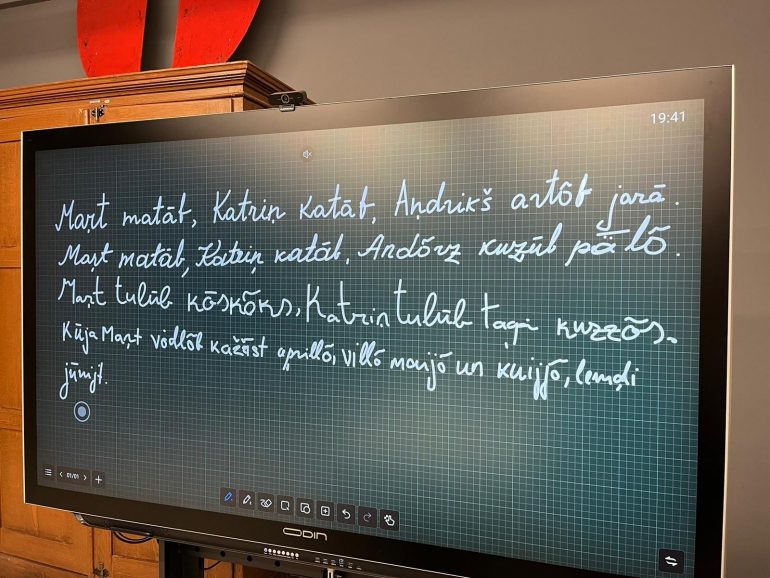 19:41
Maŗt matāb, Katriņ katāb, Aņdrikš artõb jarā.
Maŗt matāb, Katriņ katāb, Andõrz kuzūb pǟlõ.
Maŗt tulūb kōskõks, Katriņ tulūb tagā kuzzõs.
Kūja Maŗt vȯdlõb kažāst aprīllõ, villõ maijõ un kuijjõ, lemḑi
jūmḑt.
01/01
ODIN